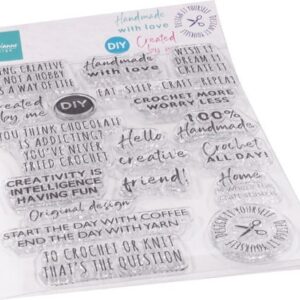 Handmade
with love
DIY
Created
by me
DESIGN IT YOURSELF
NG CREATIVE
NOT A HOBBY
A WAY OF LIFE
Handmade
with love
WISH IT
DREAM IT
CREATE IT
EAT - SLEEP - CRAFT - REPEAT
Created
by me
DIY
CROCHET MORE
WORRY LESS
YOU THINK CHOCOLATE
IS ADDICTING?
YOU'VE NEVER
TRIED CROCHET
Hello
creative
friend!
100%
Handmade
Crochet
ALL DAY!
CREATIVITY IS
INTELLIGENCE
HAVING FUN
Home
Original design
START THE DAY WITH COFFEE
END THE DAY WITH YARN
TO CROCHET OR KNIT
THAT'S THE QUESTION
DESIGN IT YOURSELF